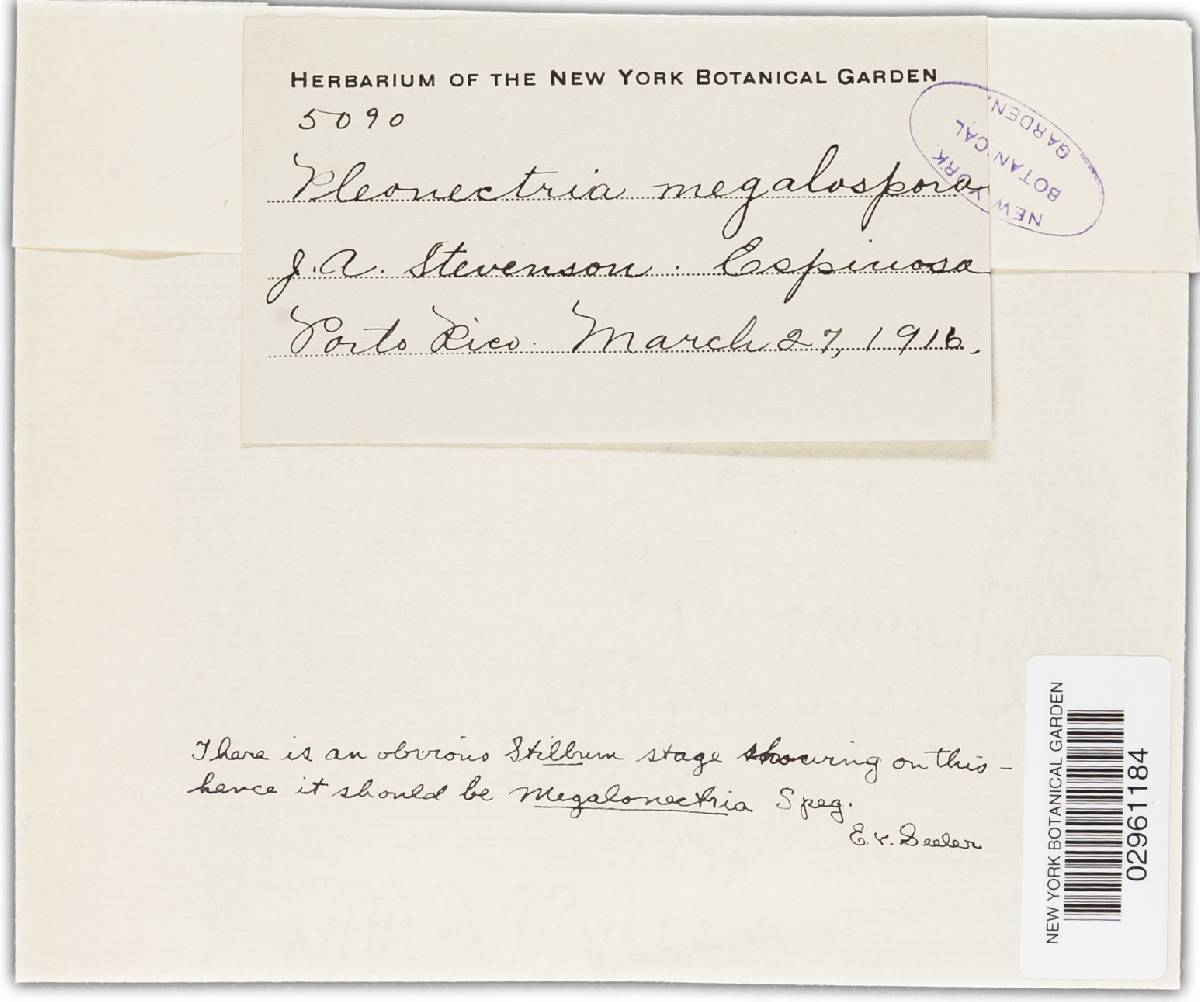 HERBARIUM OF THE NEW YORK BOTANICAL GARDEN
5090
Pleonectria megalospora
J. A. Stevenson. Espinosa
Porto Rico. March 27, 1916.
NEW YORK
BOTANICAL
GARDEN.
There is an obvious Stilbum stage showing on this –
hence it should be Megalonectria Speg.
E. V. Seeler
NEW YORK BOTANICAL GARDEN
02961184